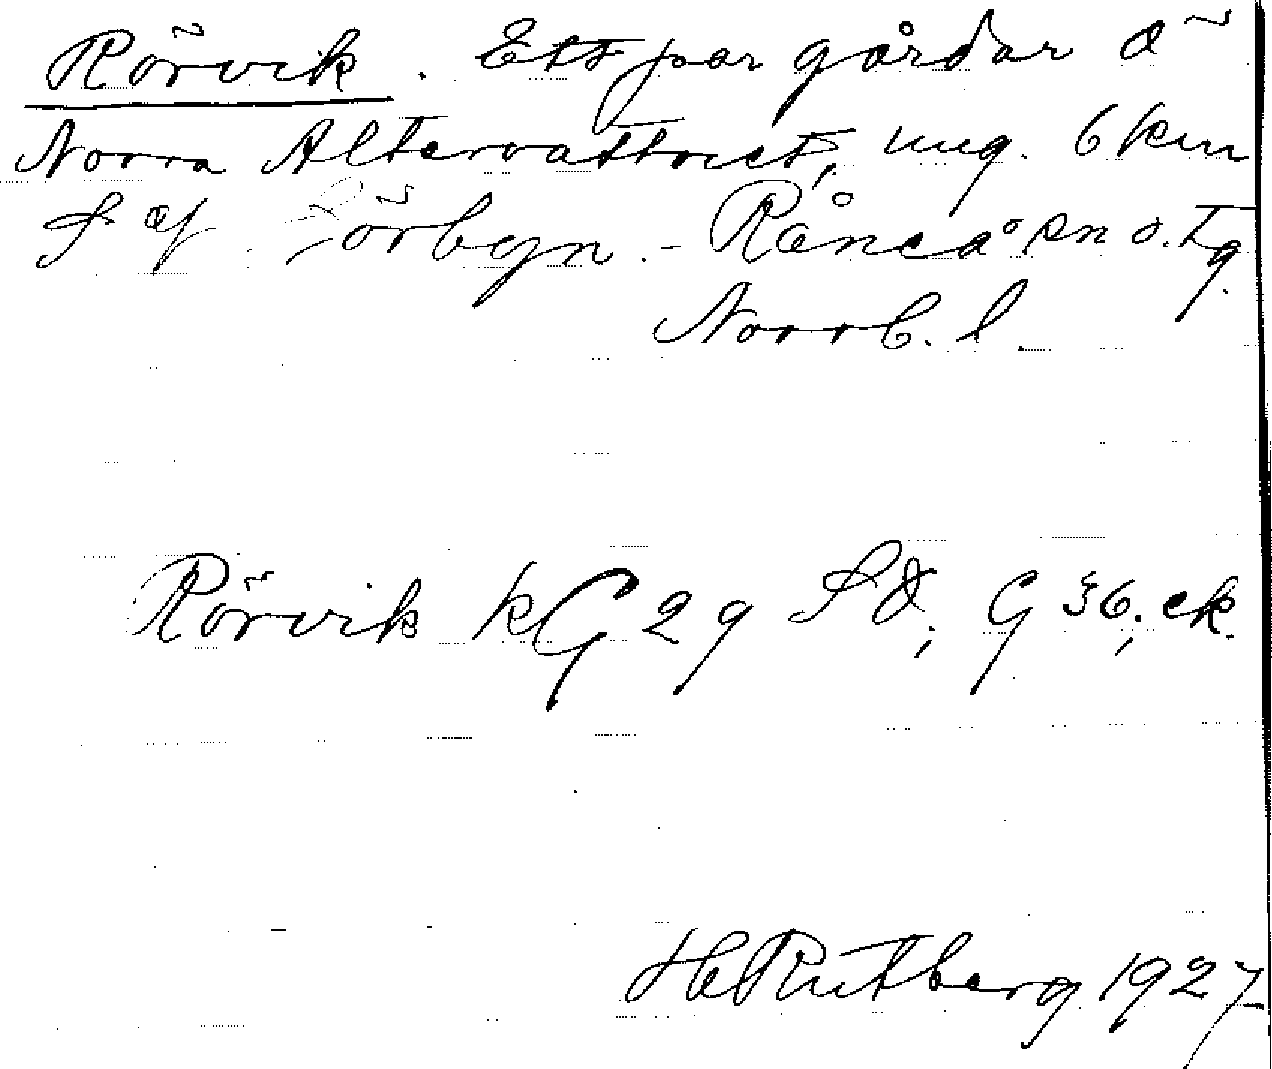 Rörvik. Ett par gårdar Ö
Norra Altervattnet, ung. 6 km
S af Sörbyn. - Råneå sn o. tg.
Norrb. l.
Rörvik kG 29 SÖ, G 36, ek.
H Rutberg 1927